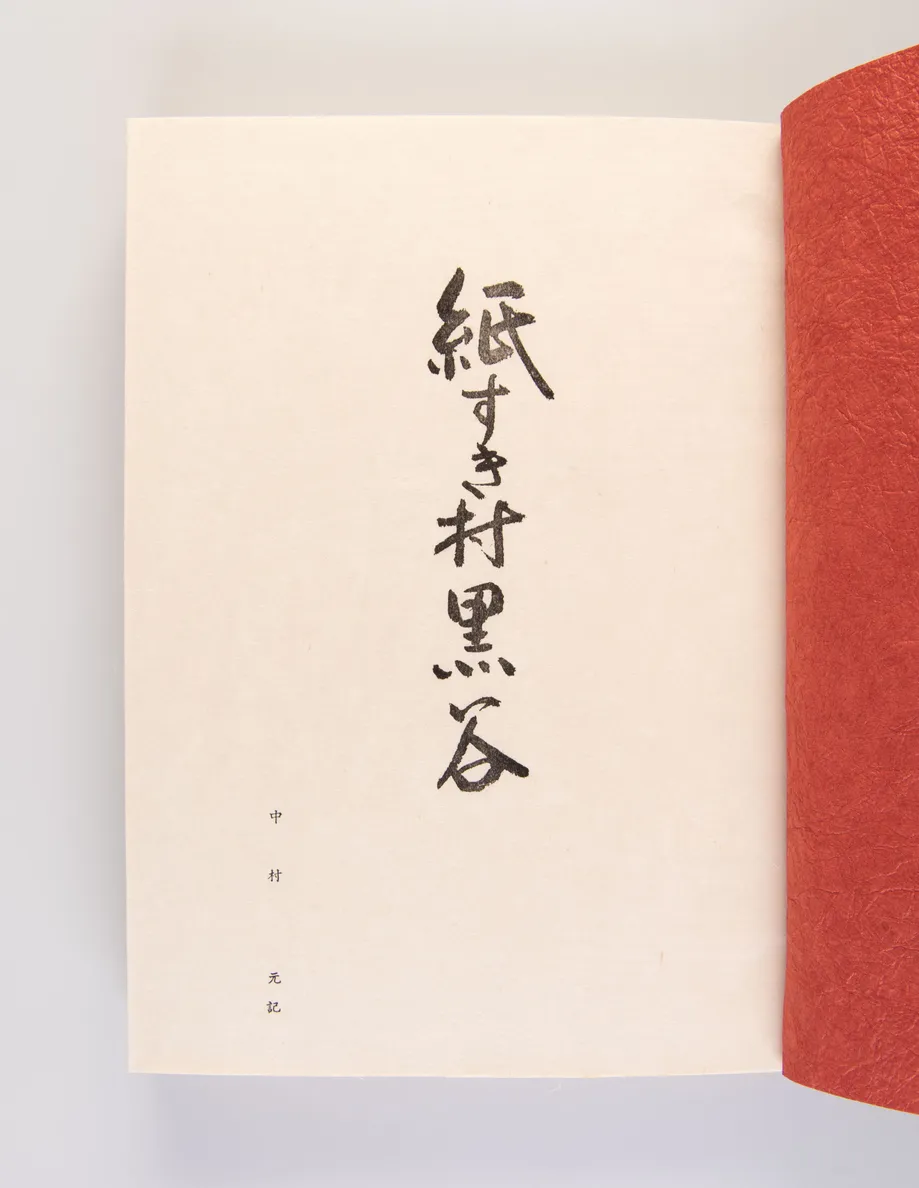 紙すき村黒谷
中村 元記